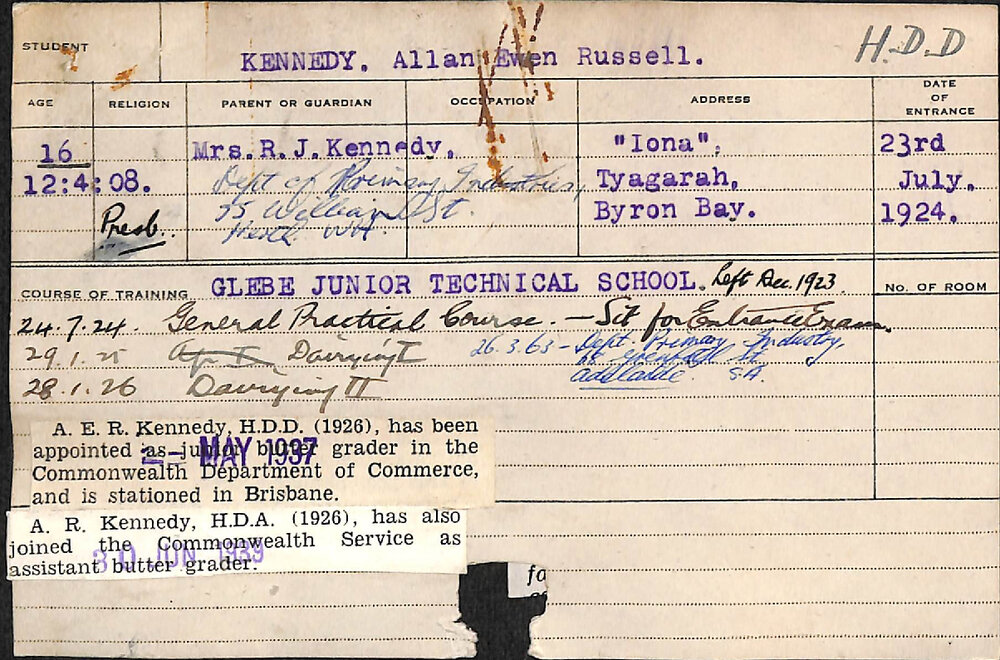 STUDENT
KENNEDY. Allan Ewen Russell.
H.D.D
AGE RELIGION PARENT OR GUARDIAN OCCUPATION ADDRESS DATE OF ENTRANCE
16 Mrs.R.J.Kennedy. "Iona", 23rd
12:4:08. Dept of Primary Industries, Tyagarah, July,
Presb. 55 William St. Byron Bay. 1924.
Perth WA.
COURSE OF TRAINING GLEBE JUNIOR TECHNICAL SCHOOL. Left Dec. 1923. No. OF ROOM
24.7.24. General Practical Course. - Sit for Entrance Exam.
29.1.25 Dairying I 26.3.63 - Dept. Primary Industry,
St
28.1.26 Dairying II Adelaide S.A.
A. E. R. Kennedy, H.D.D. (1926), has been
appointed as junior butter grader in the
2 - MAY 1937
Commonwealth Department of Commerce,
and is stationed in Brisbane.
A. R. Kennedy, H.D.A. (1926), has also
joined the Commonwealth Service as
30 JUN 1939
assistant butter grader.
fo